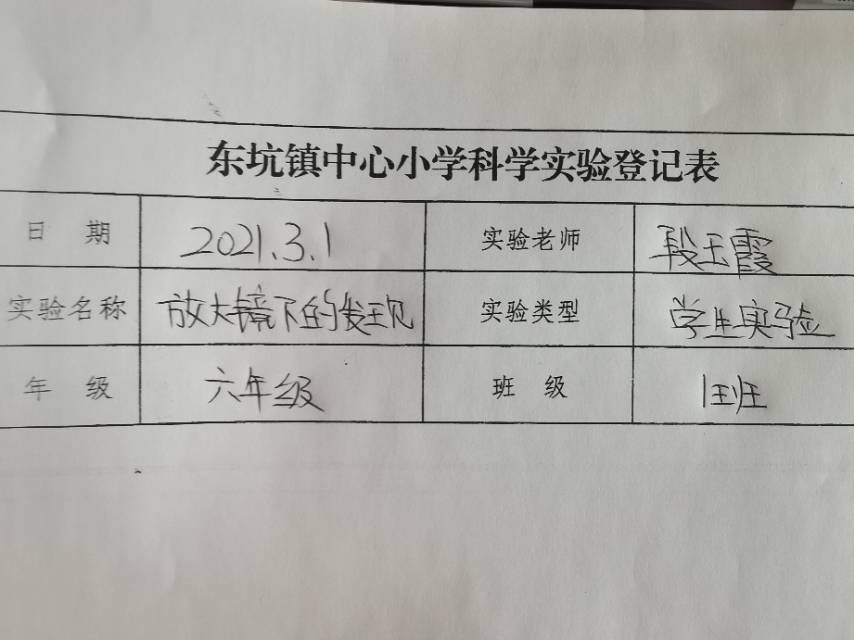 东坑镇中心小学科学实验登记表
日 期 2021.3.1 实验老师 段玉霞
实验名称 放大镜下的发现 实验类型 学生实验
年 级 六年级 班 级 1班